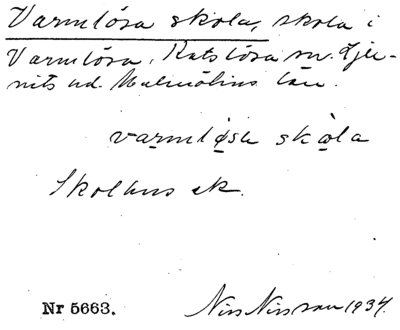 Varmlösa skola, skola i
Varmlösa, Katslösa sn. Ljunits
hd. Malmöhus län.
varmlösa skola
Skolhus ek.
Nr 5663. Nils Nilsson 1934.